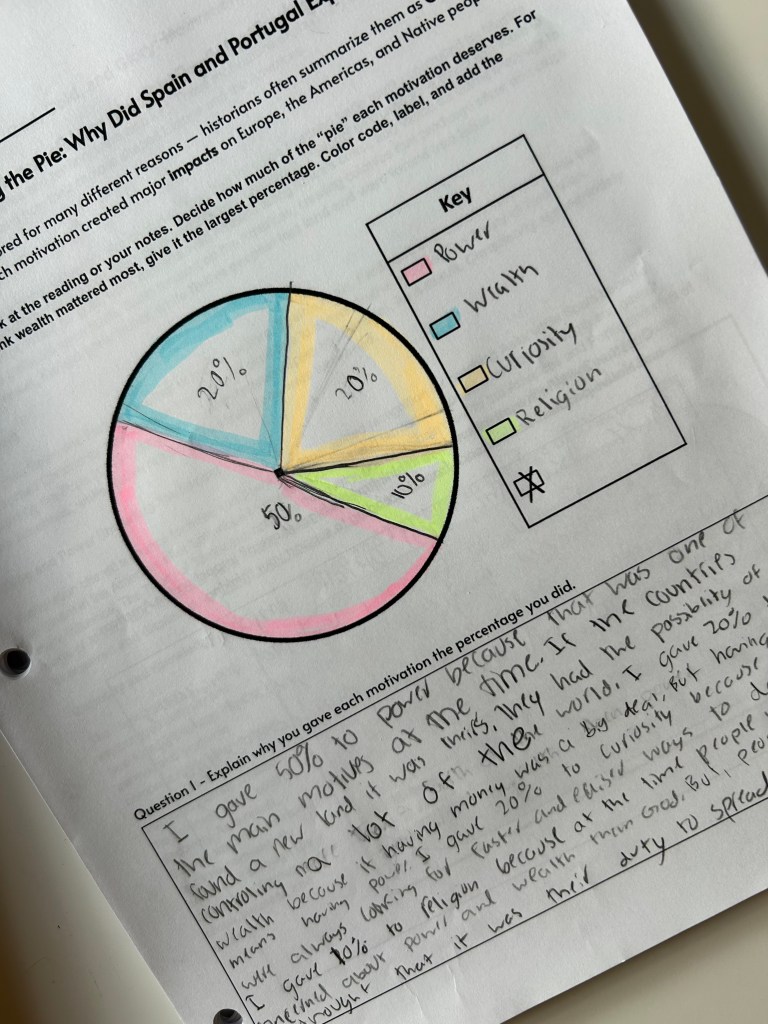 g the Pie: Why Did Spain and Portugal Exp
ored for many different reasons — historians often summarize them as
ch motivation created major impacts on Europe, the Americas, and Native peop
k at the reading or your notes. Decide how much of the "pie" each motivation deserves. For
nk wealth mattered most, give it the largest percentage. Color code, label, and add the
Key
Power
Wealth
Curiosity
Religion
20%
20%
10%
50%
Question 1 - Explain why you gave each motivation the percentage you did.
I gave 50% to power because that was one of
the main motives at the time. If the countries
found a new land it was theirs, they had the possiblity of
controling more lot of these world. I gave 20%
wealth because if having money was a big deal, But having
means having power. I gave 20% to curiosity because
were always looking for faster and easier ways to
I gave 10% to religion because at the time people
about power and wealth then God. But, peop
thought that it was their duty to spread